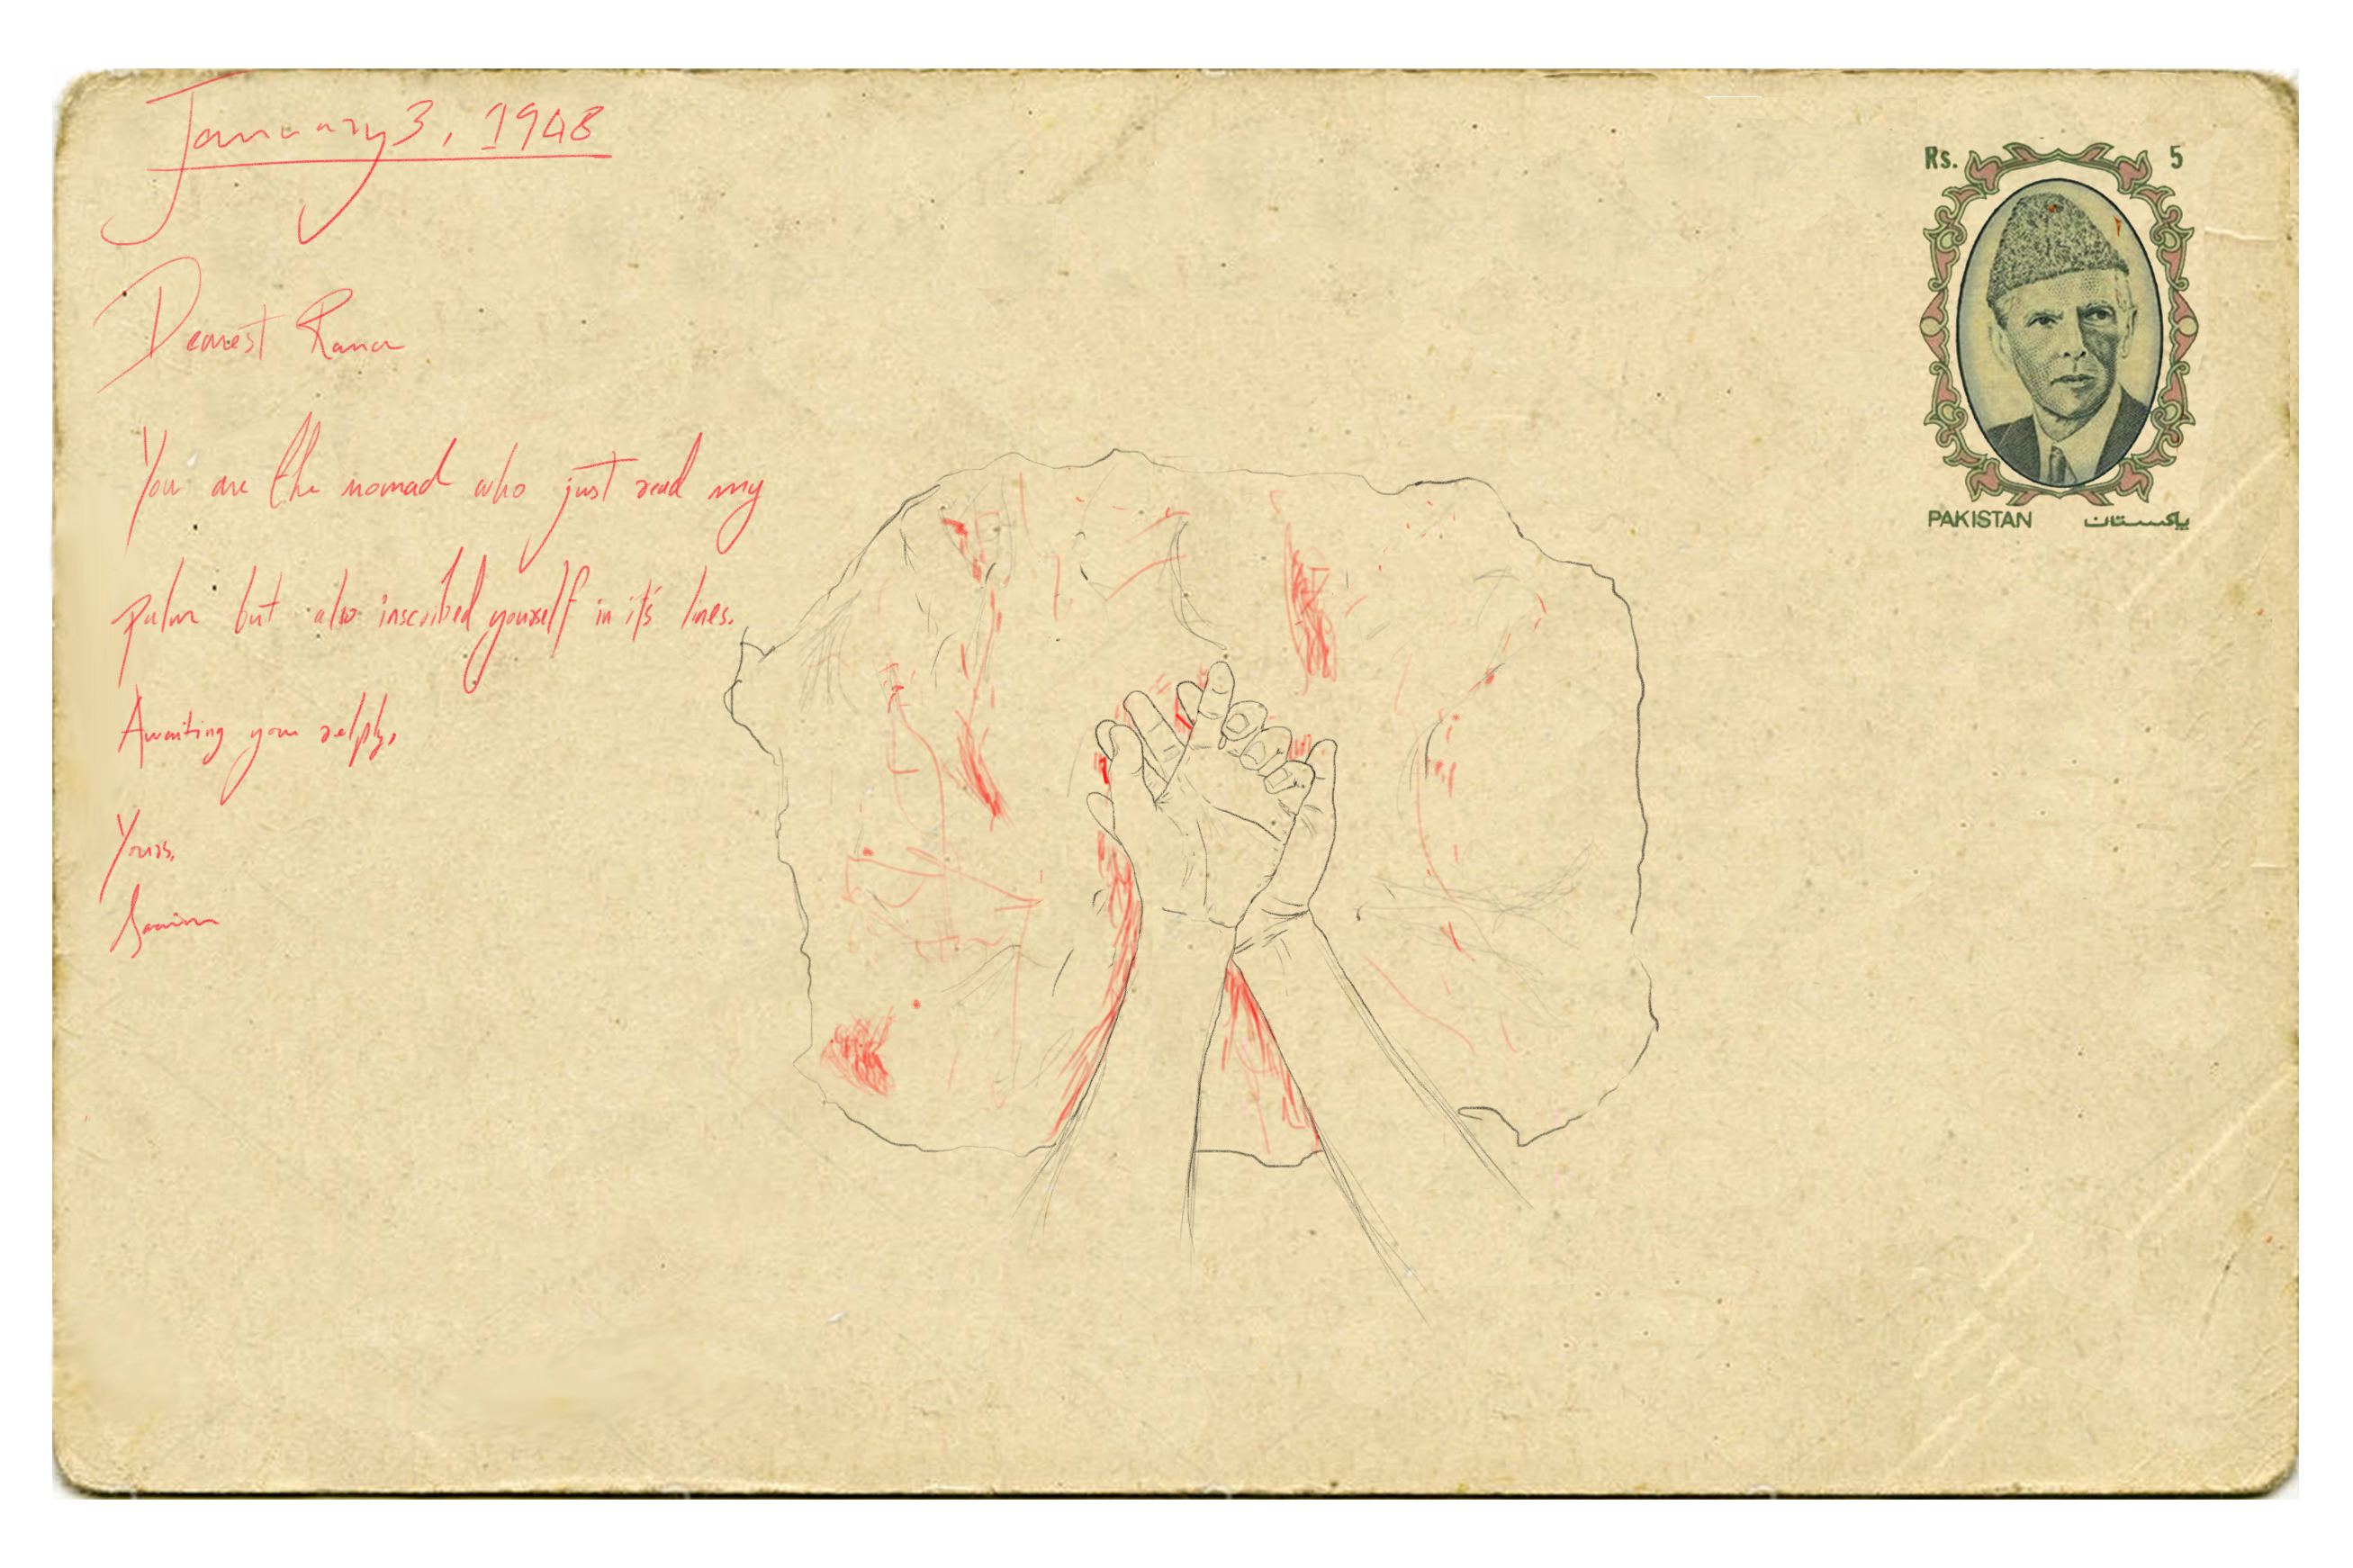 January 3, 1948
Rs. 5
Dearest Rana
You are the nomad who just read my
palm but also inscribed yourself in it's lines.
PAKISTAN پاکستان
Awaiting your relply,
Yours,